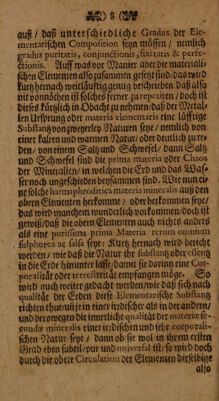 8
auß / daß unterschiedliche Gradus der Ele-
mentarischen Composition seyn müssen / nemlich
gradus puritatis, conjunctionis, fixitatis & perfe-
ctionis. Auff was vor Manier aber die materiali-
schen Elementen also zusammen gesetzt sind / das wird
kurtz hernach weitläufftig genug beschrieben daß also
nit vonnöhten ist solches ferner zu repetiren / doch ist
dieses kürtzlich in Obacht zu nehmen / daß der Metal-
len Ursprung oder materia elementaris eine lüfftige
Substanz von zweyerley Naturen seye / nemlich von
einer kalten und warmen Natur / oder deutlich zu re-
den / von einem Saltz und Schwefel / dann Saltz
und Schwefel sind die prima materia oder Chaos
der Mineralien / in welchen die Erd und das Was-
ser noch ungeschieden beysammen sind. Wie nun ei-
ne solche harmaphroditica materia mineralis auß den
obern Elementen herkomme / oder herkommen seye /
das wird manchem wunderlich vorkommen. doch ist
gewiß / daß die obern Elementen auch nichts anders
als eine purissima prima Materia rerum omnium
sulphurea ac salsa seye: Kurtz hernach wird bericht
werden / wie daß die Natur ihr substanz oder essentz
in die Erde hinunter lasse / damit sie darinn eine Cor-
poralität oder terrestrität empfangen möge. So
wird auch weiter gedacht werden / wie daß sich nach
qualität der Erden diese Elementarische Substanz
richten thue / uñ je einer irrdischer als in der andern /
und derowegen die innerliche qualität der materiæ se-
cundæ mineralis einer irrdischen und sehr corporali-
schen Natur seye / dann ob sie wol in ihrem ersten
Grad eben subtil / pur und universal ist / so wird doch
durch die obere Circulation der Elementen dieselbige
also